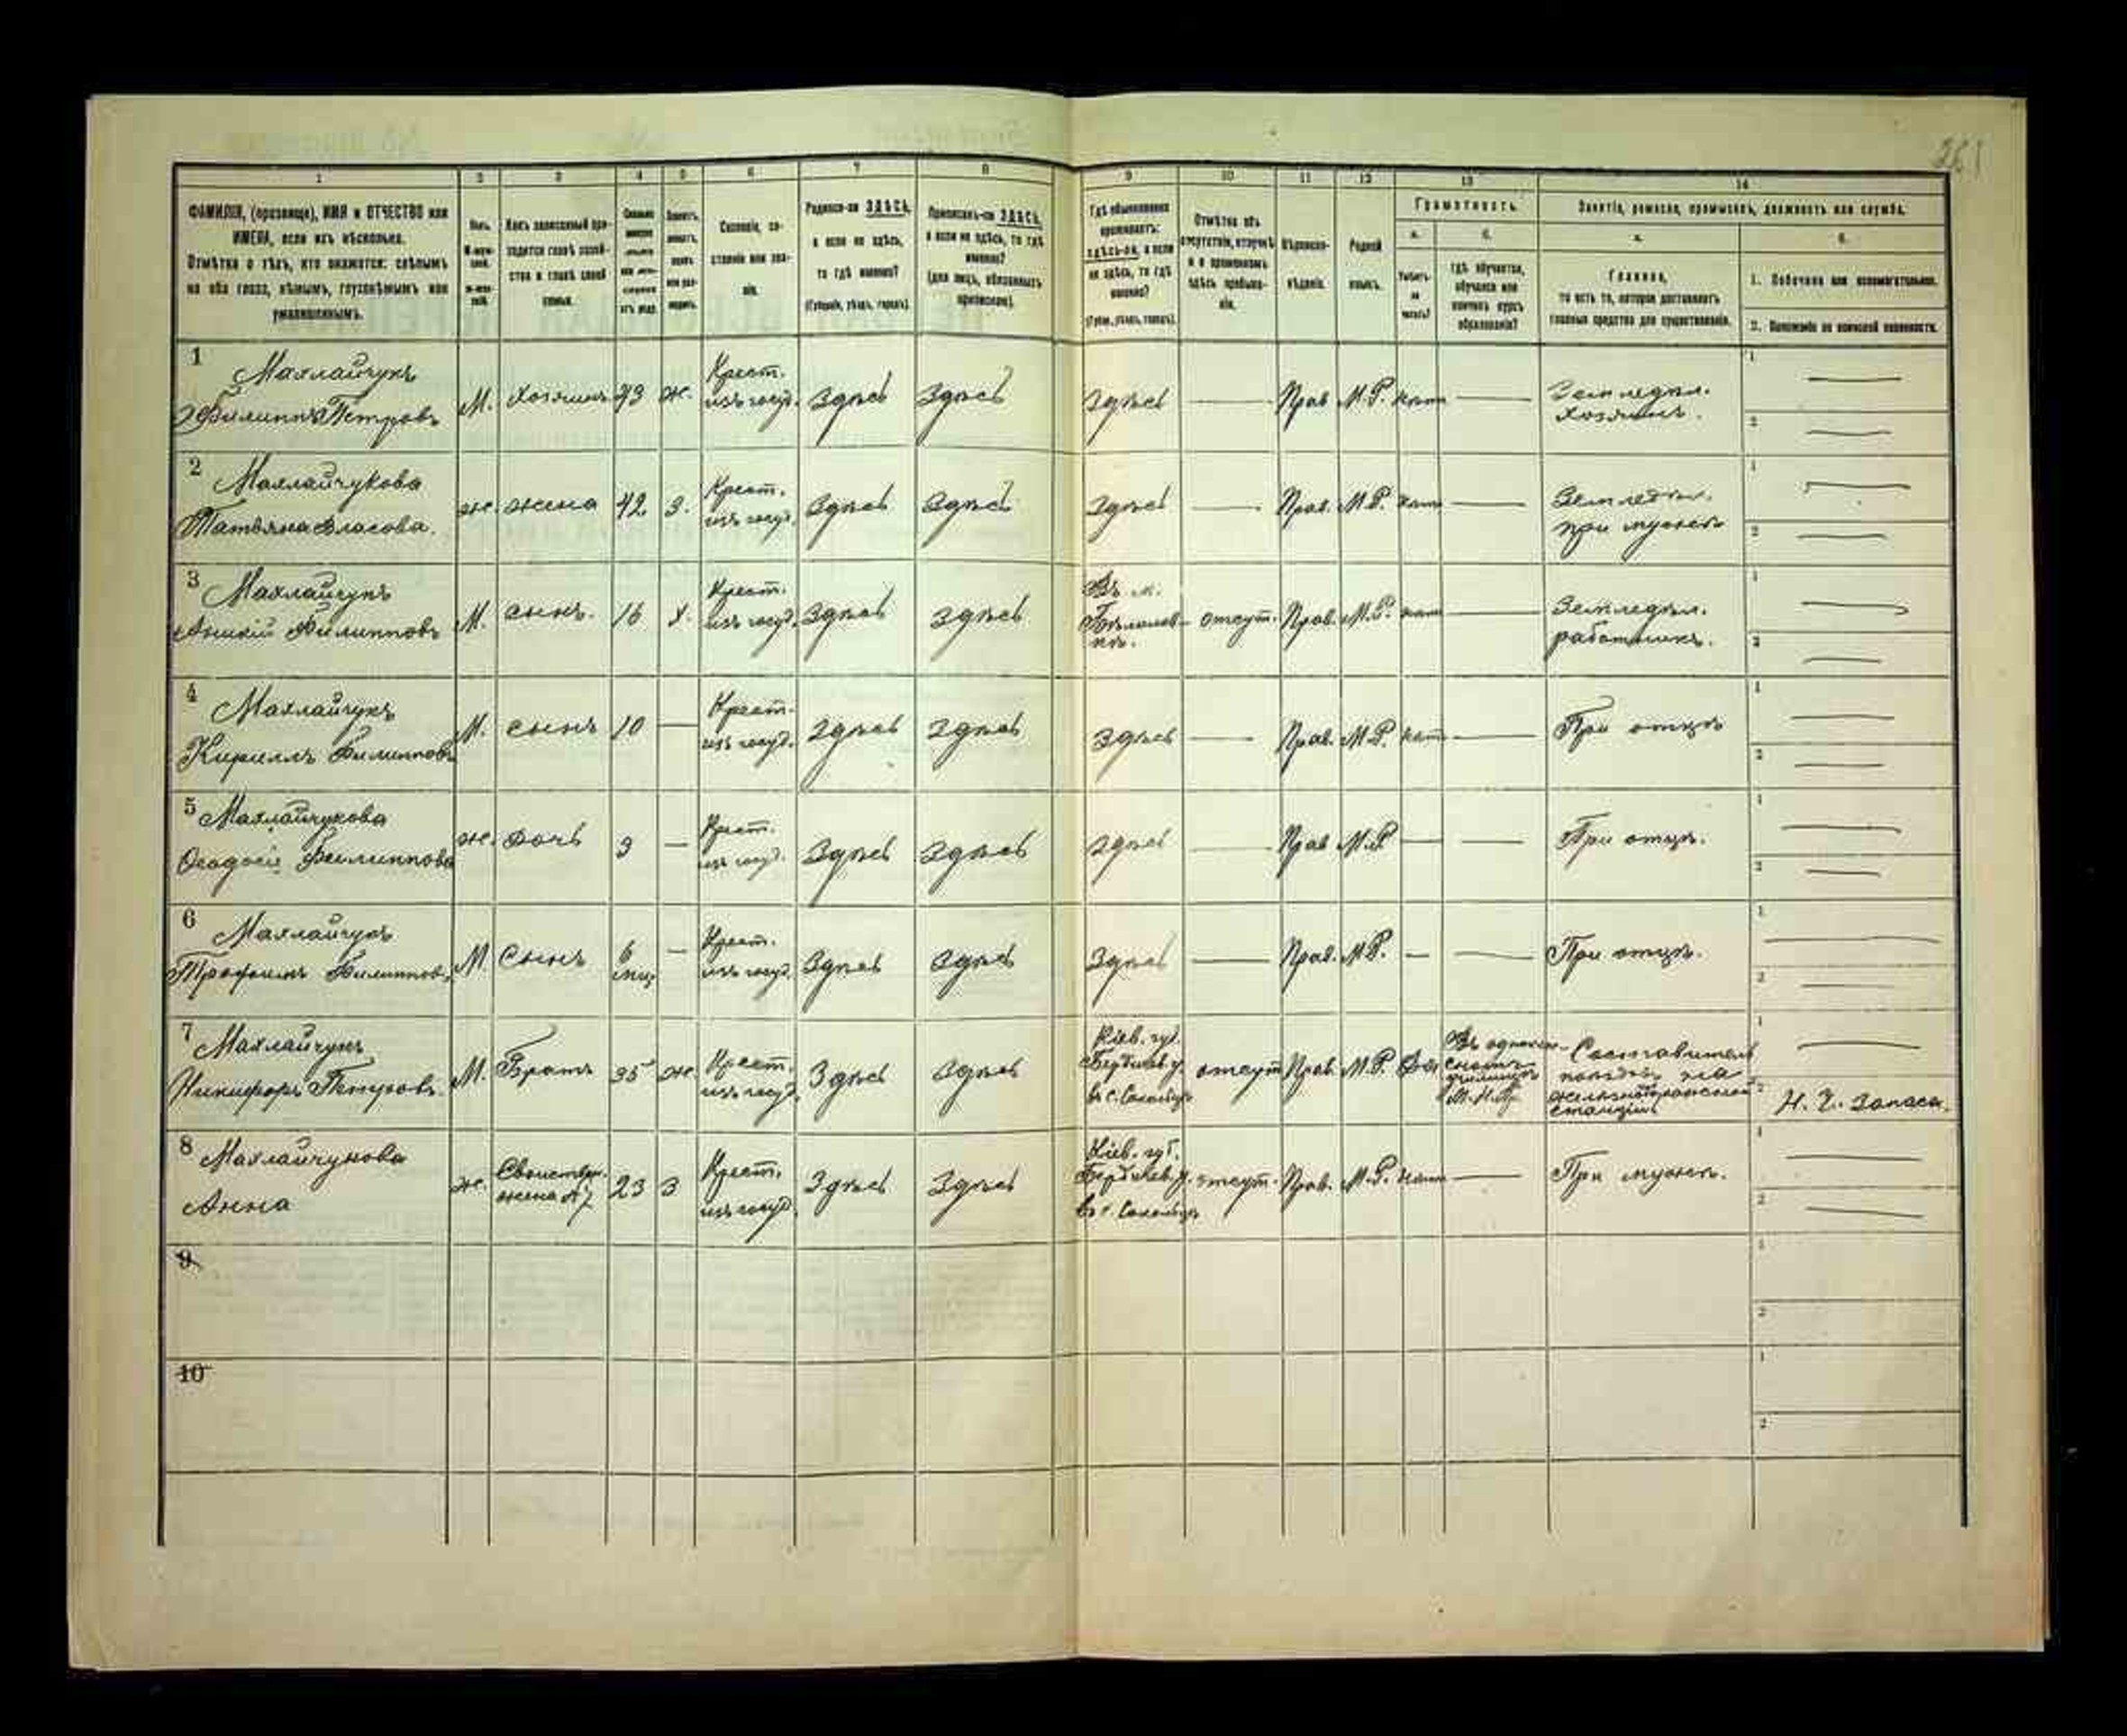 261
1 2 3 4 5 6 7 8 9 10 11 12 13 14
ФАМИЛІЯ, (прозвище), ИМЯ и ОТЧЕСТВО или
ИМЕНА, если ихъ нѣсколько.
Отмѣтка о тѣхъ, кто окажется: слѣпымъ
на оба глаза, нѣмымъ, глухонѣмымъ или
умалишеннымъ.
Полъ.
Какъ записанный при-
ходится главѣ хозяй-
ства и главѣ своей
семьи.
Сословіе, со-
стояніе или зва-
ніе.
Родился-ли ЗДѢСЬ,
а если не здѣсь,
то гдѣ именно?
(Губернія, уѣздъ, городъ).
Приписанъ-ли ЗДѢСЬ,
а если не здѣсь, то гдѣ
именно?
(для лицъ, обязанныхъ
припискою).
Гдѣ обыкновенно
проживаетъ:
здѣсь-ли, а если
не здѣсь, то гдѣ
именно?
(Губерн., уѣздъ, городъ).
Отмѣтка объ
отсутствіи, отлучкѣ
и о временномъ
здѣсь пребыва-
ніи.
Вѣроиспо-
вѣданіе.
Родной
языкъ.
Грамотность.
а. б.
Умѣетъ-
ли
читать?
Гдѣ обучается,
обучался или
кончилъ курсъ
образованія?
Занятіе, ремесло, промыселъ, должность или служба.
а. б.
Главное,
то есть то, которое доставляетъ
главныя средства для существованія.
1. Побочное или вспомогательное.
2. Положеніе по воинской повинности.
1 Махлайчукъ
Филиппъ Петровъ
М. хозяинъ 43 ж. Крест. изъ госуд. Здѣсь Здѣсь Здѣсь — Прав М.Р. нѣтъ — Земледѣл. хозяинъ.
2 Махлайчукова
Татьяна Власова.
ж. жена 42 З. Крест. изъ госуд. Здѣсь Здѣсь Здѣсь — Прав. М.Р. нѣтъ — Земледѣл. при мужѣ
3 Махлайчукъ
Филипповъ
М. сынъ. 16 Х. Крест. изъ госуд. Здѣсь Здѣсь Въ м. отсут. Прав. М.Р. нѣтъ — Земледѣл. работникъ.
4 Махлайчукъ
Кириллъ Филипповъ
М. сынъ 10 — Крест. изъ госуд. Здѣсь Здѣсь Здѣсь — Прав. М.Р. нѣтъ — При отцѣ
5 Махлайчукова
Филиппова
ж. дочь 3 — Крест. изъ госуд. Здѣсь Здѣсь Здѣсь — Прав М.Р — — При отцѣ.
6 Махлайчукъ
Трофимъ Филиппов.
М сынъ 6 мпц — Крест. изъ госуд. Здѣсь Здѣсь Здѣсь — Прав. М.Р. — — При отцѣ.
7 Махлайчукъ
Никифоръ Петровъ.
М. Братъ 35 ж. Крест. изъ госуд. Здѣсь Здѣсь Кіев. губ. Бердичев. у. отсут Прав. М.Р. М.Н.Пр. Составитель поѣздовъ на желѣзнодорожной станціи Н. Ч. Запаса.
8 Махлайчукова
Анна
ж. Свойствен. жена №7 23 З Крест. изъ госуд. Здѣсь Здѣсь Кіев. губ. Бердичев. у. отсут. Прав. М.Р. нѣтъ — При мужѣ.
9
10